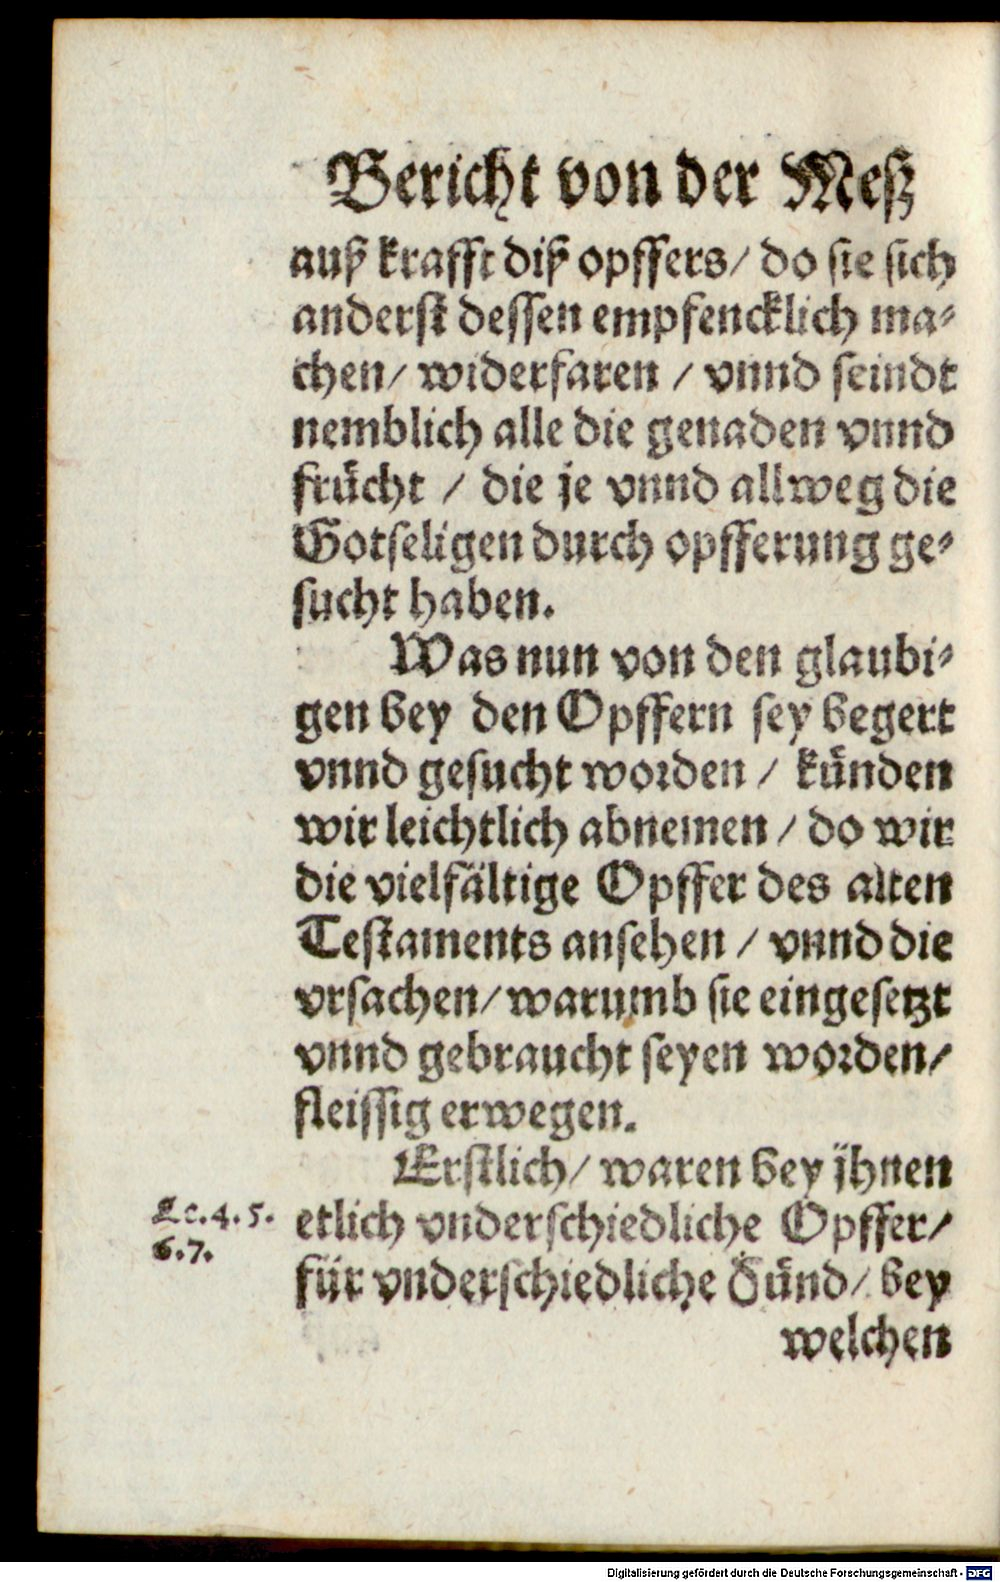 Bericht von der Meß
auß krafft diß opffers/ do sie sich
anderst dessen empfencklich ma-
chen/ widerfaren / vnnd seindt
nemblich alle die genaden vnnd
frücht / die je vnnd allweg die
Gotseligen durch opfferung ge-
sucht haben.
Was nun von den glaubi-
gen bey den Opffern sey begert
vnnd gesucht worden / künden
wir leichtlich abnemen / do wir
die vielfältige Opffer des alten
Testaments ansehen / vnnd die
vrsachen/ warumb sie eingesetzt
vnnd gebraucht seyen worden/
fleissig erwegen.
Erstlich/ waren bey jhnen
Le. 4. 5. etlich vnderschiedliche Opffer/
6. 7.
für vnderschiedliche Sünd/ bey
welchen
Digitalisierung gefördert durch die Deutsche Forschungsgemeinschaft - DFG